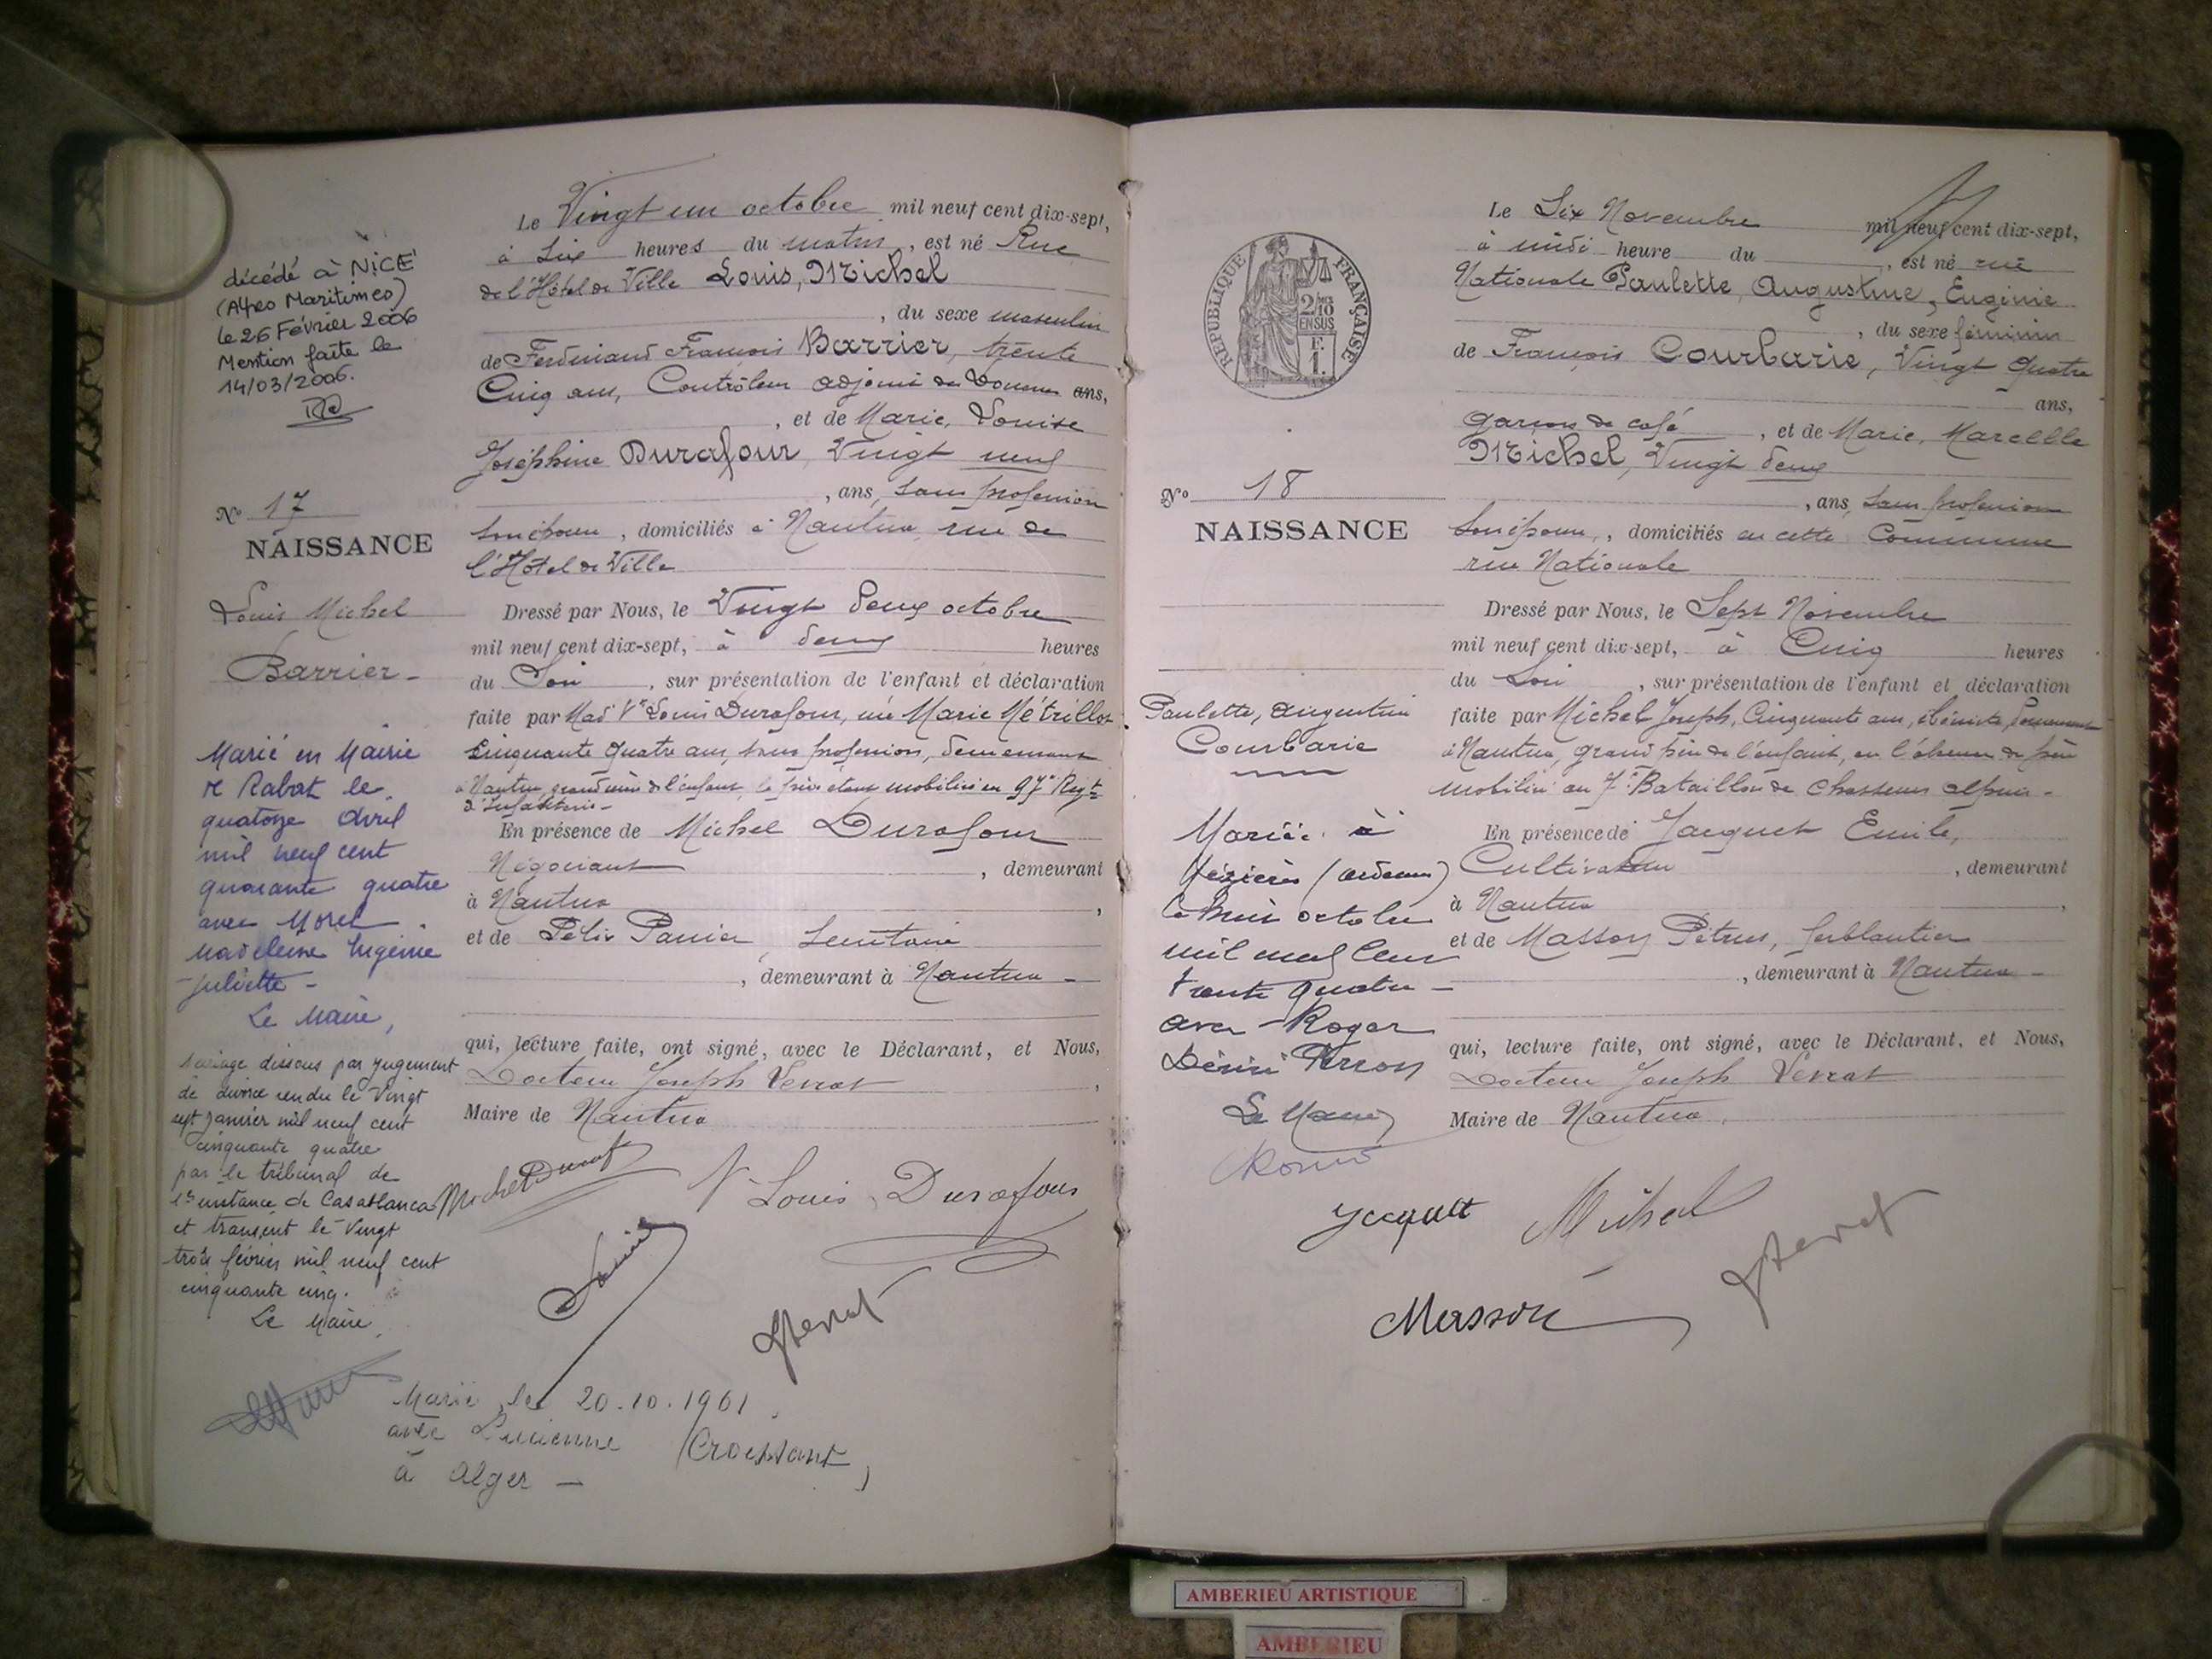 Le Vingt un octobre mil neuf cent dix-sept,
à Six heures du matin, est né Rue
de l'Hôtel de Ville Louis, Michel
, du sexe masculin
de Ferdinand François Barrier, trente
Cinq ans, Contrôleur adjoint des Douanes ans,
, et de Marie, Louise
Joséphine Durafour, Vingt neuf
, ans, sans profession
son épouse, domiciliés à Nantua, rue de
l'Hôtel de Ville
Dressé par Nous, le Vingt deux octobre
mil neuf cent dix-sept, à deux heures
du Soir, sur présentation de l'enfant et déclaration
faite par Mad Vve Louis Durafour, née Marie Métrillot
Cinquante quatre ans, sans profession, demeurant
à Nantua, grand'mère de l'enfant, le père étant mobilisé au 97e Regt
d'Infanterie -
En présence de Michel Durafour
Négociant, demeurant
à Nantua,
et de Félix Panier, Secrétaire
, demeurant à Nantua -
qui, lecture faite, ont signé, avec le Déclarant, et Nous,
Docteur Joseph Verrat,
Maire de Nantua
V Louis Durafour
décédé à NICE
(Alpes Maritimes)
le 26 Février 2006
Mention faite le
14/03/2006.
No 17
NAISSANCE
Louis Michel
Barrier -
Marié en Mairie
de Rabat le
quatorze Avril
mil neuf cent
quarante quatre
avec Morel
Madeleine Eugénie
Juliette -
Le Maire,
Mariage dissous par jugement
de divorce rendu le Vingt
sept janvier mil neuf cent
cinquante quatre
par le tribunal de
1ère instance de Casablanca
et transcrit le Vingt
trois février mil neuf cent
cinquante cinq.
Le Maire,
Marié le 20.10.1961
avec Lucienne Croissant
à Alger -
RÉPUBLIQUE FRANÇAISE
2/10
EN SUS
F.
1.
Le Six Novembre mil neuf cent dix-sept,
à midi heure du , est né rue
Nationale Paulette, Augustine, Eugénie
, du sexe féminin
de François Courbarie, Vingt quatre
ans,
garçon de café, et de Marie, Marcelle
Michel, Vingt deux
, ans, sans profession
son épouse, domiciliés en cette Commune
rue Nationale
Dressé par Nous, le Sept Novembre
mil neuf cent dix-sept, à Cinq heures
du Soir, sur présentation de l'enfant et déclaration
faite par Michel Joseph, Cinquante ans, ébéniste, demeurant
à Nantua, grand père de l'enfant, en l'absence du père
mobilisé au 7e Bataillon de Chasseurs alpins -
En présence de Jacquet Emile,
Cultivateur, demeurant
à Nantua,
et de Masson Pétrus, ferblantier
, demeurant à Nantua -
qui, lecture faite, ont signé, avec le Déclarant, et Nous,
Docteur Joseph Verrat
Maire de Nantua.
Jacquet Michel
Masson
No 18
NAISSANCE
Paulette, Augustine
Courbarie
Mariée à
Mézières (Ardennes)
le huit octobre
mil neuf cent
trente quatre -
avec Roger
Désiré Perron
Le Maire
AMBERIEU ARTISTIQUE
AMBERIEU